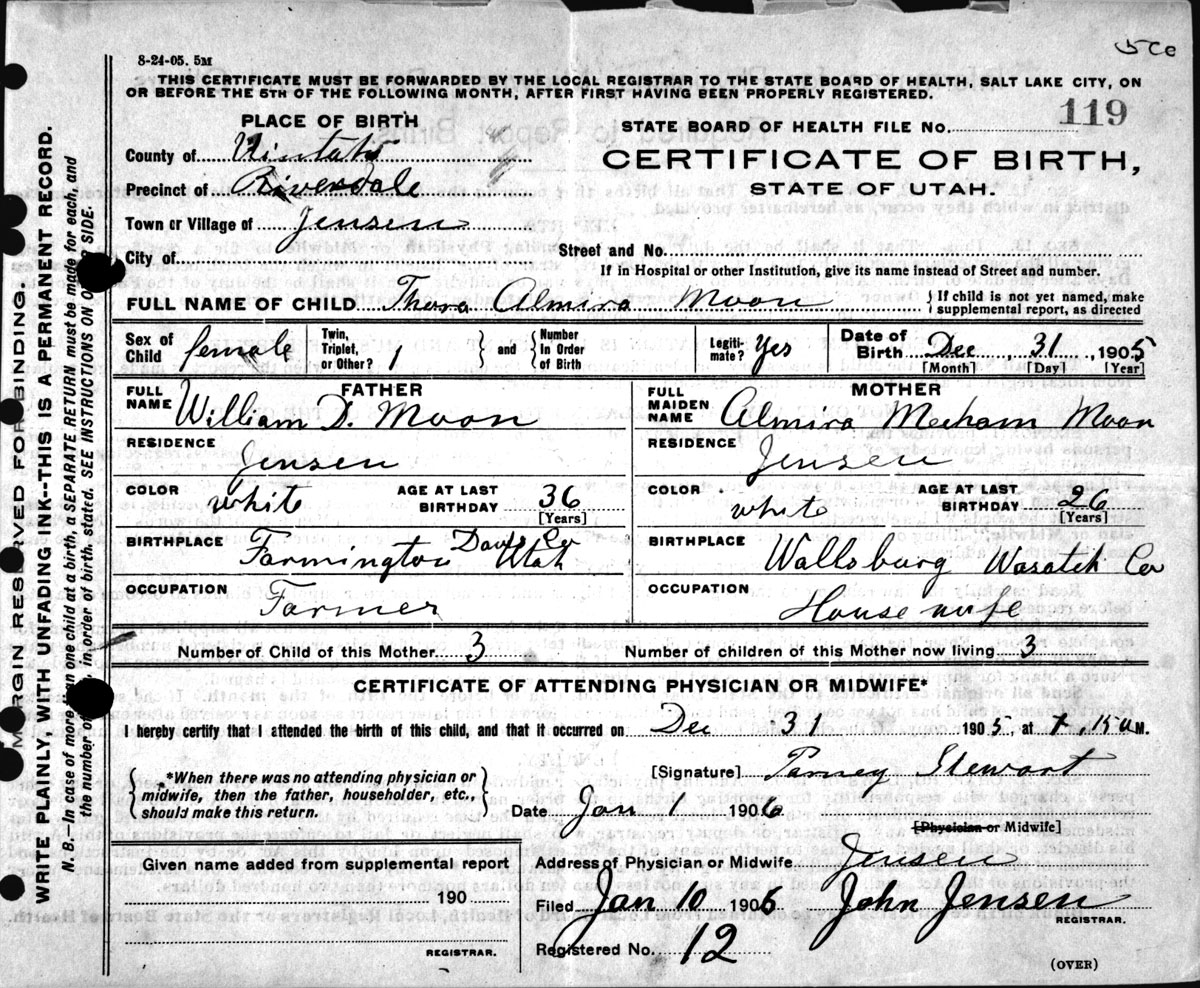 5Co
8-24-05. 5M
THIS CERTIFICATE MUST BE FORWARDED BY THE LOCAL REGISTRAR TO THE STATE BOARD OF HEALTH, SALT LAKE CITY, ON
OR BEFORE THE 5TH OF THE FOLLOWING MONTH, AFTER FIRST HAVING BEEN PROPERLY REGISTERED.
PLACE OF BIRTH
County of Uintah
Precinct of Riverdale
Town or Village of Jensen
City of
STATE BOARD OF HEALTH FILE No. 119
CERTIFICATE OF BIRTH,
STATE OF UTAH.
Street and No.
If in Hospital or other Institution, give its name instead of Street and number.
FULL NAME OF CHILD Thora Almira Moon { If child is not yet named, make
supplemental report, as directed
Sex of Child female Twin, Triplet, or Other? 1 } and { Number In Order of Birth Legiti-mate? Yes Date of Birth Dec, 31, 1905
[Month] [Day] [Year]
FATHER
FULL NAME William D. Moon
RESIDENCE
Jensen
COLOR white AGE AT LAST BIRTHDAY 36
[Years]
BIRTHPLACE Farmington Davis Co Utah
OCCUPATION
Farmer
MOTHER
FULL MAIDEN NAME Almira Mecham Moon
RESIDENCE
Jensen
COLOR white AGE AT LAST BIRTHDAY 26
[Years]
BIRTHPLACE
Wallsburg Wasatch Co
OCCUPATION
Housewife
Number of Child of this Mother 3 Number of children of this Mother now living 3
CERTIFICATE OF ATTENDING PHYSICIAN OR MIDWIFE*
I hereby certify that I attended the birth of this child, and that it occurred on Dec 31 1905, at 15 a M.
{ *When there was no attending physician or
midwife, then the father, householder, etc.,
should make this return. }
[Signature] Stewart
Date Jan 1906
[Physician or Midwife]
Given name added from supplemental report
190
REGISTRAR.
Address of Physician or Midwife Jensen
Filed Jan 10 1906 John Jensen
REGISTRAR.
Registered No. 12
(OVER)
MARGIN RESERVED FOR BINDING.
WRITE PLAINLY, WITH UNFADING INK--THIS IS A PERMANENT RECORD.
N. B.—In case of more than one child at a birth, a SEPARATE RETURN must be made for each, and
the number of, in order of birth stated. SEE INSTRUCTIONS ON SIDE.